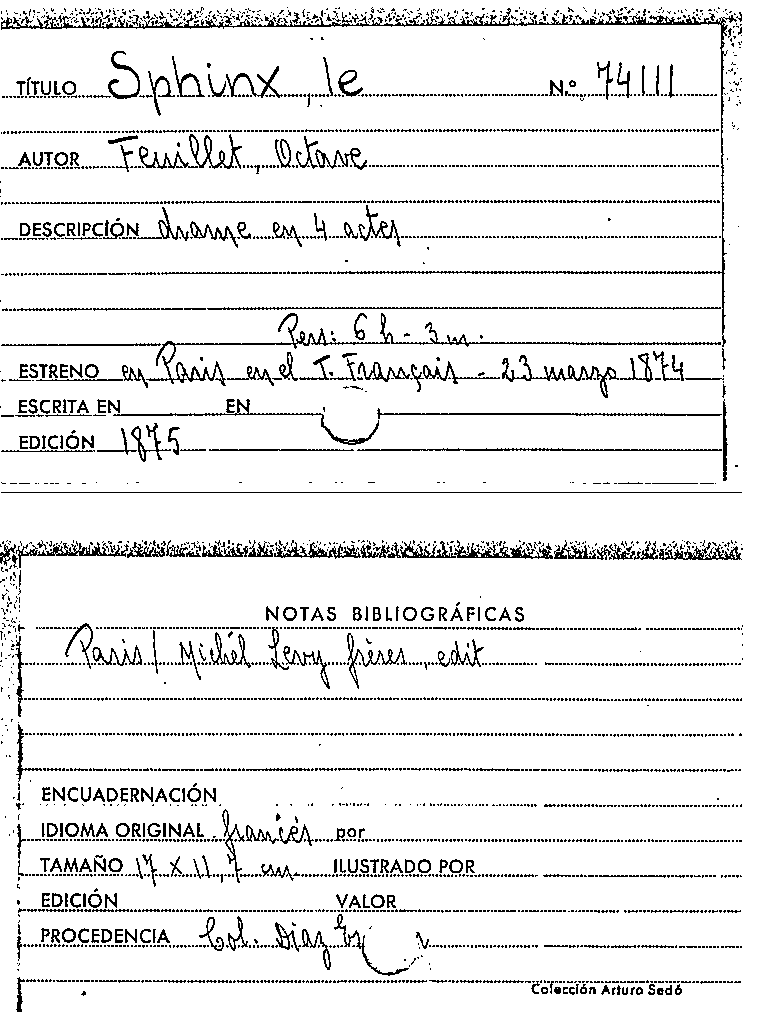 TÍTULO Sphinx, le N.º 74111
AUTOR Feuillet, Octave
DESCRIPCIÓN drame en 4 actes
Pers: 6 h - 3 m.
ESTRENO en Paris en el T. Français - 23 marzo 1874
ESCRITA EN EN
EDICIÓN 1875
NOTAS BIBLIOGRÁFICAS
Paris / Michél Levy frères, edit
ENCUADERNACIÓN
IDIOMA ORIGINAL francés por
TAMAÑO 17 X 11,7 cm ILUSTRADO POR
EDICIÓN VALOR
PROCEDENCIA Col. Díaz
Colección Arturo Sedó